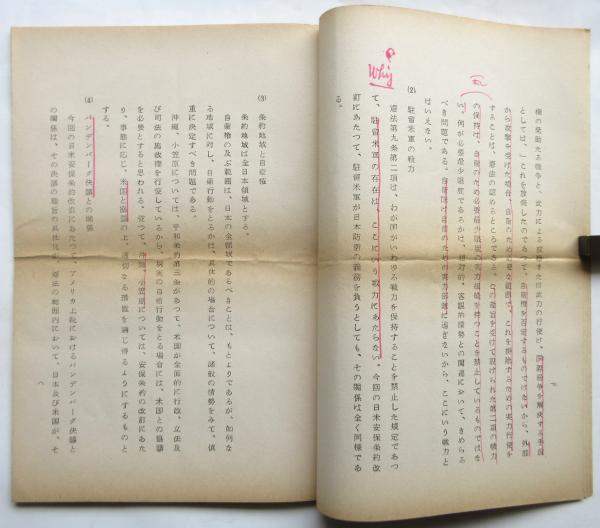 権の発動たる戦争と、武力による威嚇または武力の行使は、国際紛争を解決する手段
としては、」これを放棄したのであつて、自衛権を否定するものではないから、外部
から攻撃を受けた場合、自衛のため必要な範囲で、これを排除するための実力行使を
することは、憲法の認めるところである。この趣旨を受けて設けられた第二項の戦力
の保持は、自衛のため必要最少限度の実力組織を持つことを禁止しているものではな
い。何が必要最少限度であるかは、相対的、客観的情勢との関連において、きめらる
べき問題である。自衛隊は自衛のための実力部隊に過ぎないから、ここにいう戦力と
はいえない。
(2) 駐留米軍の戦力
Why?
憲法第九条第二項は、わが国がいわゆる戦力を保持することを禁止した規定であつ
て、駐留米軍の存在は、ここにいう戦力にあたらない。今回の日米安保条約改
訂にあたつて、駐留米軍が日本防衛の義務を負うとしても、その関係は全く同様であ
る。
(3) 条約地域と自衛権
条約地域は全日本領域とする。
自衛権の及ぶ範囲は、日本の全領域であるべきことは、もとよりであるが、如何な
る地域に対し、自衛行動をとるかは、具体的の場合について、諸般の情勢をみて、慎
重に決定すべき問題である。
沖縄、小笠原については、平和条約第三条があつて、米国が全面的に行政、立法及
び司法の施政権を行使しているから、現実の自衛行動をとる場合には、米国との協議
を必要とすると思われる。従つて、沖縄、小笠原については、安保条約の改訂にあた
り、事態に応じ、米国と協議の上、適切なる措置を講じ得るようにするものと
する。
(4) バンデンバーグ決議との関係
今回の日米安保条約改訂にあたつて、アメリカ上院におけるバンデンバーグ決議と
の関係は、その決議の趣旨の具体化は、憲法の範囲内において、日本及び米国が、そ